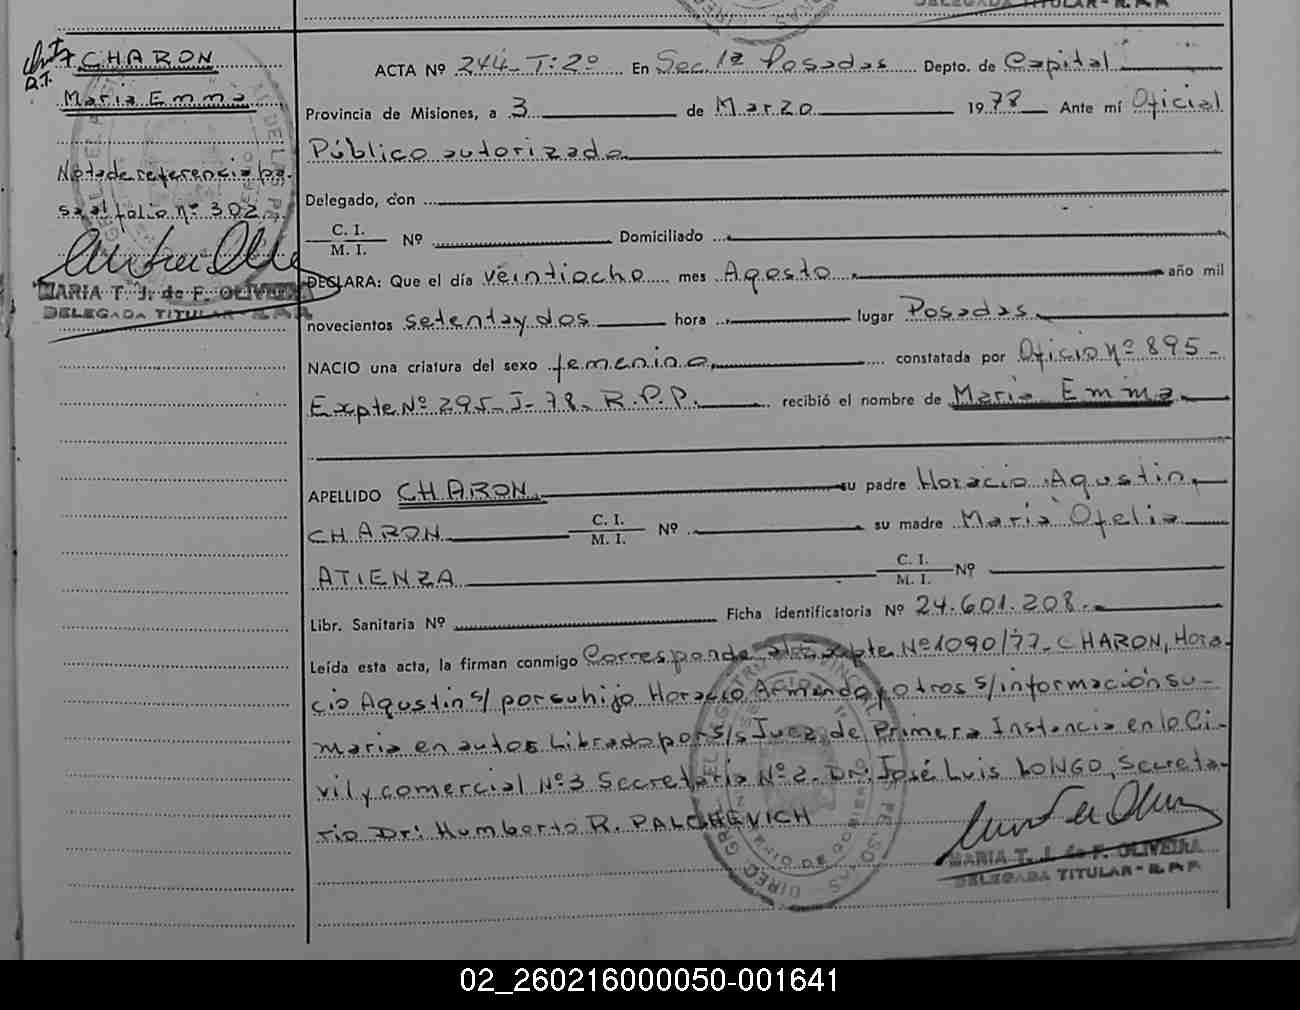 CHARON
Maria Emma
Nota de referencia pa-
sa al folio nº 302.
MARIA T. J. de F. OLIVEIRA
DELEGADA TITULAR - R.P.P
DELEGADA TITULAR - R.P.P
ACTA Nº 244-T:2º En Sec. 1ª Posadas Depto. de Capital
Provincia de Misiones, a 3 de Marzo 1978 Ante mí Oficial
Público autorizado
Delegado, con
C. I.
M. I. Nº Domiciliado
DECLARA: Que el día veintiocho mes Agosto año mil
novecientos setenta y dos hora lugar Posadas
NACIO una criatura del sexo femenino constatada por Oficio Nº 895-
Expte Nº 295-J-78- R.P.P. recibió el nombre de Maria Emma
APELLIDO CHARON su padre Horacio Agustin
CHARON C. I. M. I. Nº su madre Maria Ofelia
ATIENZA C. I. M. I. Nº
Libr. Sanitaria Nº Ficha identificatoria Nº 24.601.208.-
Leída esta acta, la firman conmigo Corresponde al Expte Nº1090/77- CHARON, Hora-
cio Agustin s/ por su hijo Horacio Armando y otros s/información su-
maria en autos Librado por S/s Juez de Primera Instancia en lo Ci-
vil y comercial Nº3 Secretaría Nº2- Dr. José Luis LONGO, Secreta-
rio Dr: Humberto R. PALCHEVICH
MARIA T. J. de F. OLIVEIRA
DELEGADA TITULAR - R.P.P
02_260216000050-001641